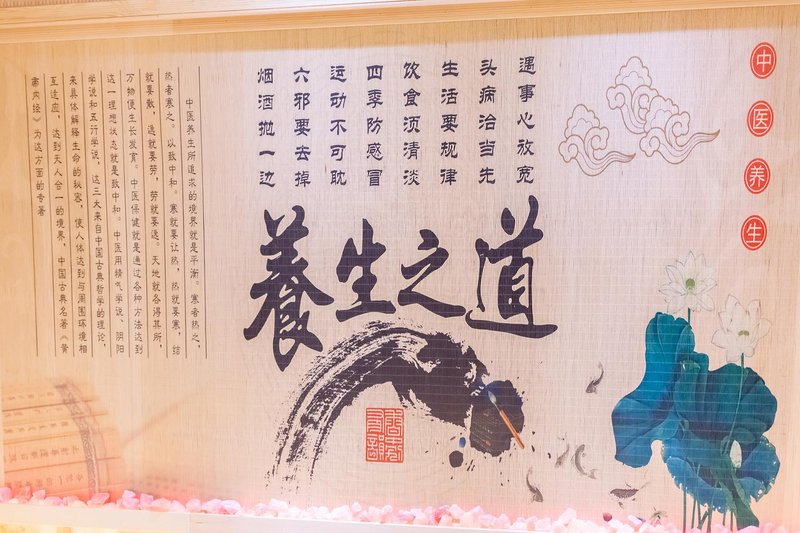 中医养生
遇事心放宽
头病治当先
生活要规律
饮食须清淡
四季防感冒
运动不可耽
六邪要去掉
烟酒抛一边
養生之道
中医养生所追求的境界就是平衡。寒者热之，
热者寒之。以致中和。寒就要让热，热就要寒，结
就要散，逸就要劳，劳就要逸。天地就各得其所，
万物便生长发育。中医保健就是通过各种方法达到
这一理想状态就是致中和。中医用精气学说、阴阳
学说和五行学说，这三大来自中国古典哲学的理论，
来具体解释生命的秘密，使人体达到与周围环境相
互适应，达到天人合一的境界，中国古典名著《黄
帝内经》为这方面的专著